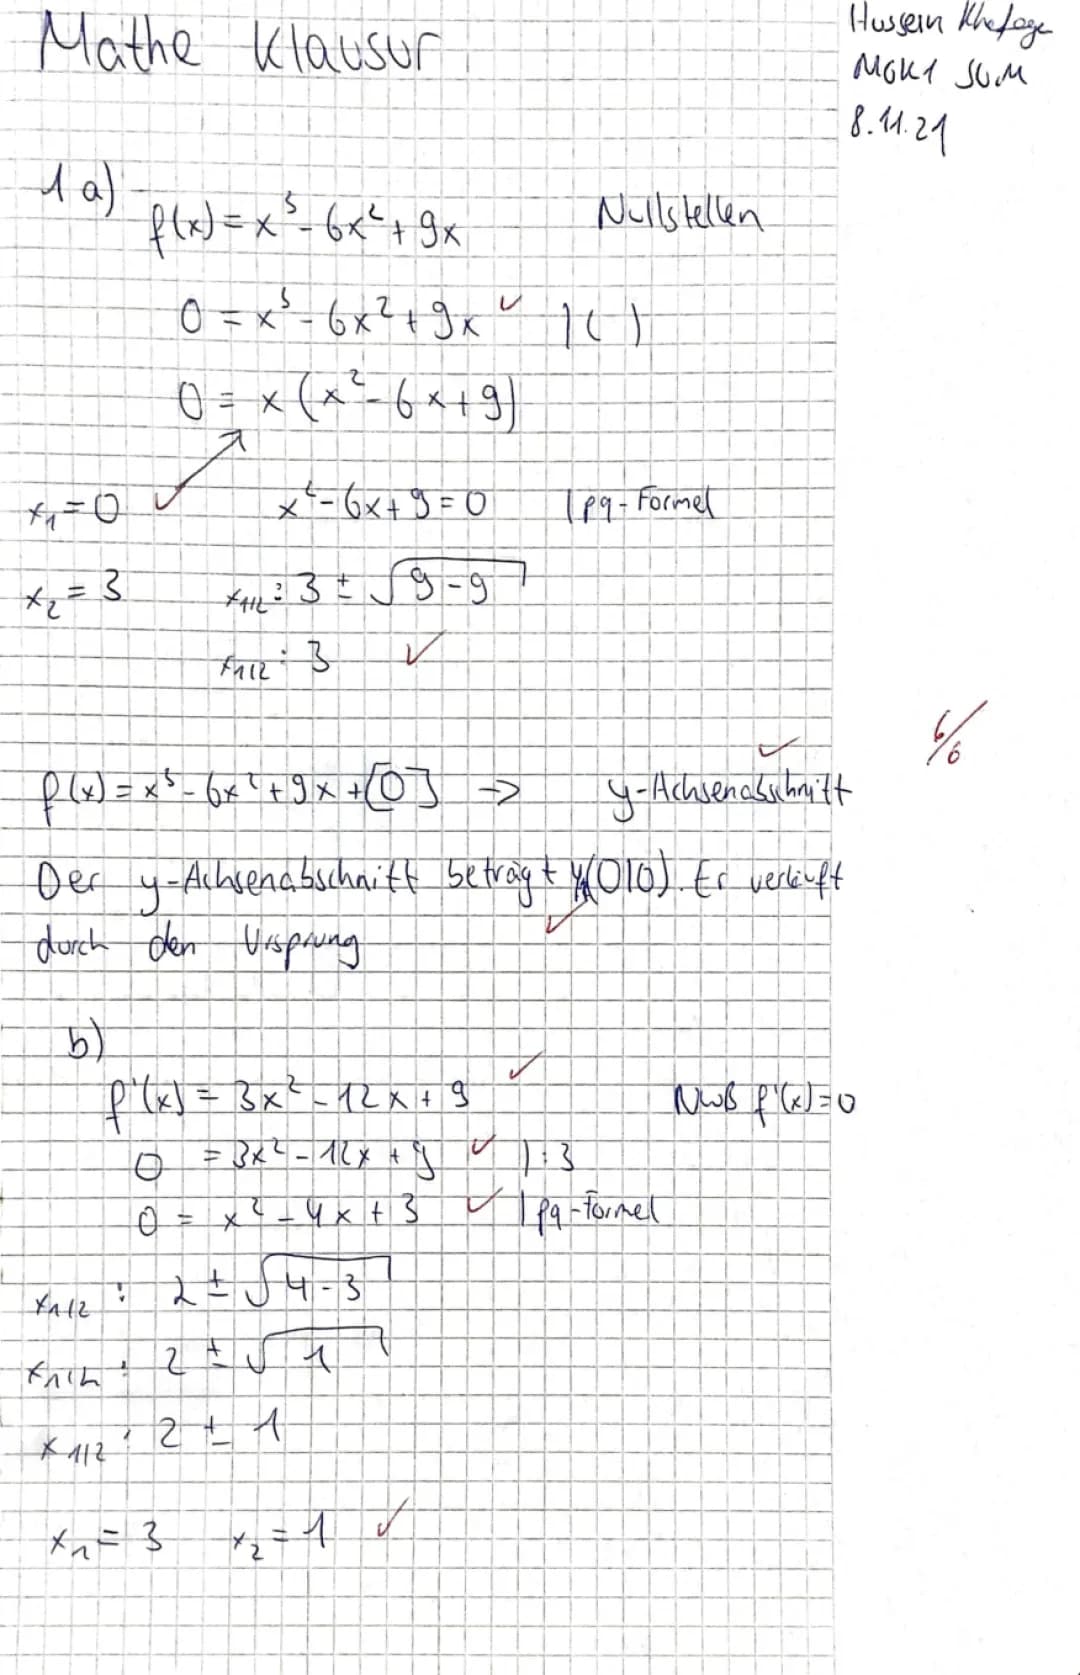 Mathe Klausur
Hussein Khafage
MGK1 SUM
8.11.21
1 a)
f(x) = x³ - 6x² + 9x Nullstellen
0 = x³ - 6x² + 9x ✓ | ( )
0 = x (x² - 6x + 9)
x₁ = 0 ✓ x² - 6x + 9 = 0 | pq-Formel
x₂ = 3 x₁/₂ : 3 ± √9-9
x₁/₂ : 3 ✓
6/6
f(x) = x³ - 6x² + 9x + [0] → y-Achsenabschnitt ✓
Der y-Achsenabschnitt beträgt (0|0). Er verläuft
durch den Ursprung ✓
b)
f'(x) = 3x² - 12x + 9 ✓ NwB f'(x)=0
0 = 3x² - 12x + 9 ✓ | : 3
0 = x² - 4x + 3 ✓ | pq-Formel
x₁/₂ : 2 ± √4-3
x₁/₂ : 2 ± √1
x₁/₂ : 2 ± 1
x₁ = 3 x₂ = 1 ✓